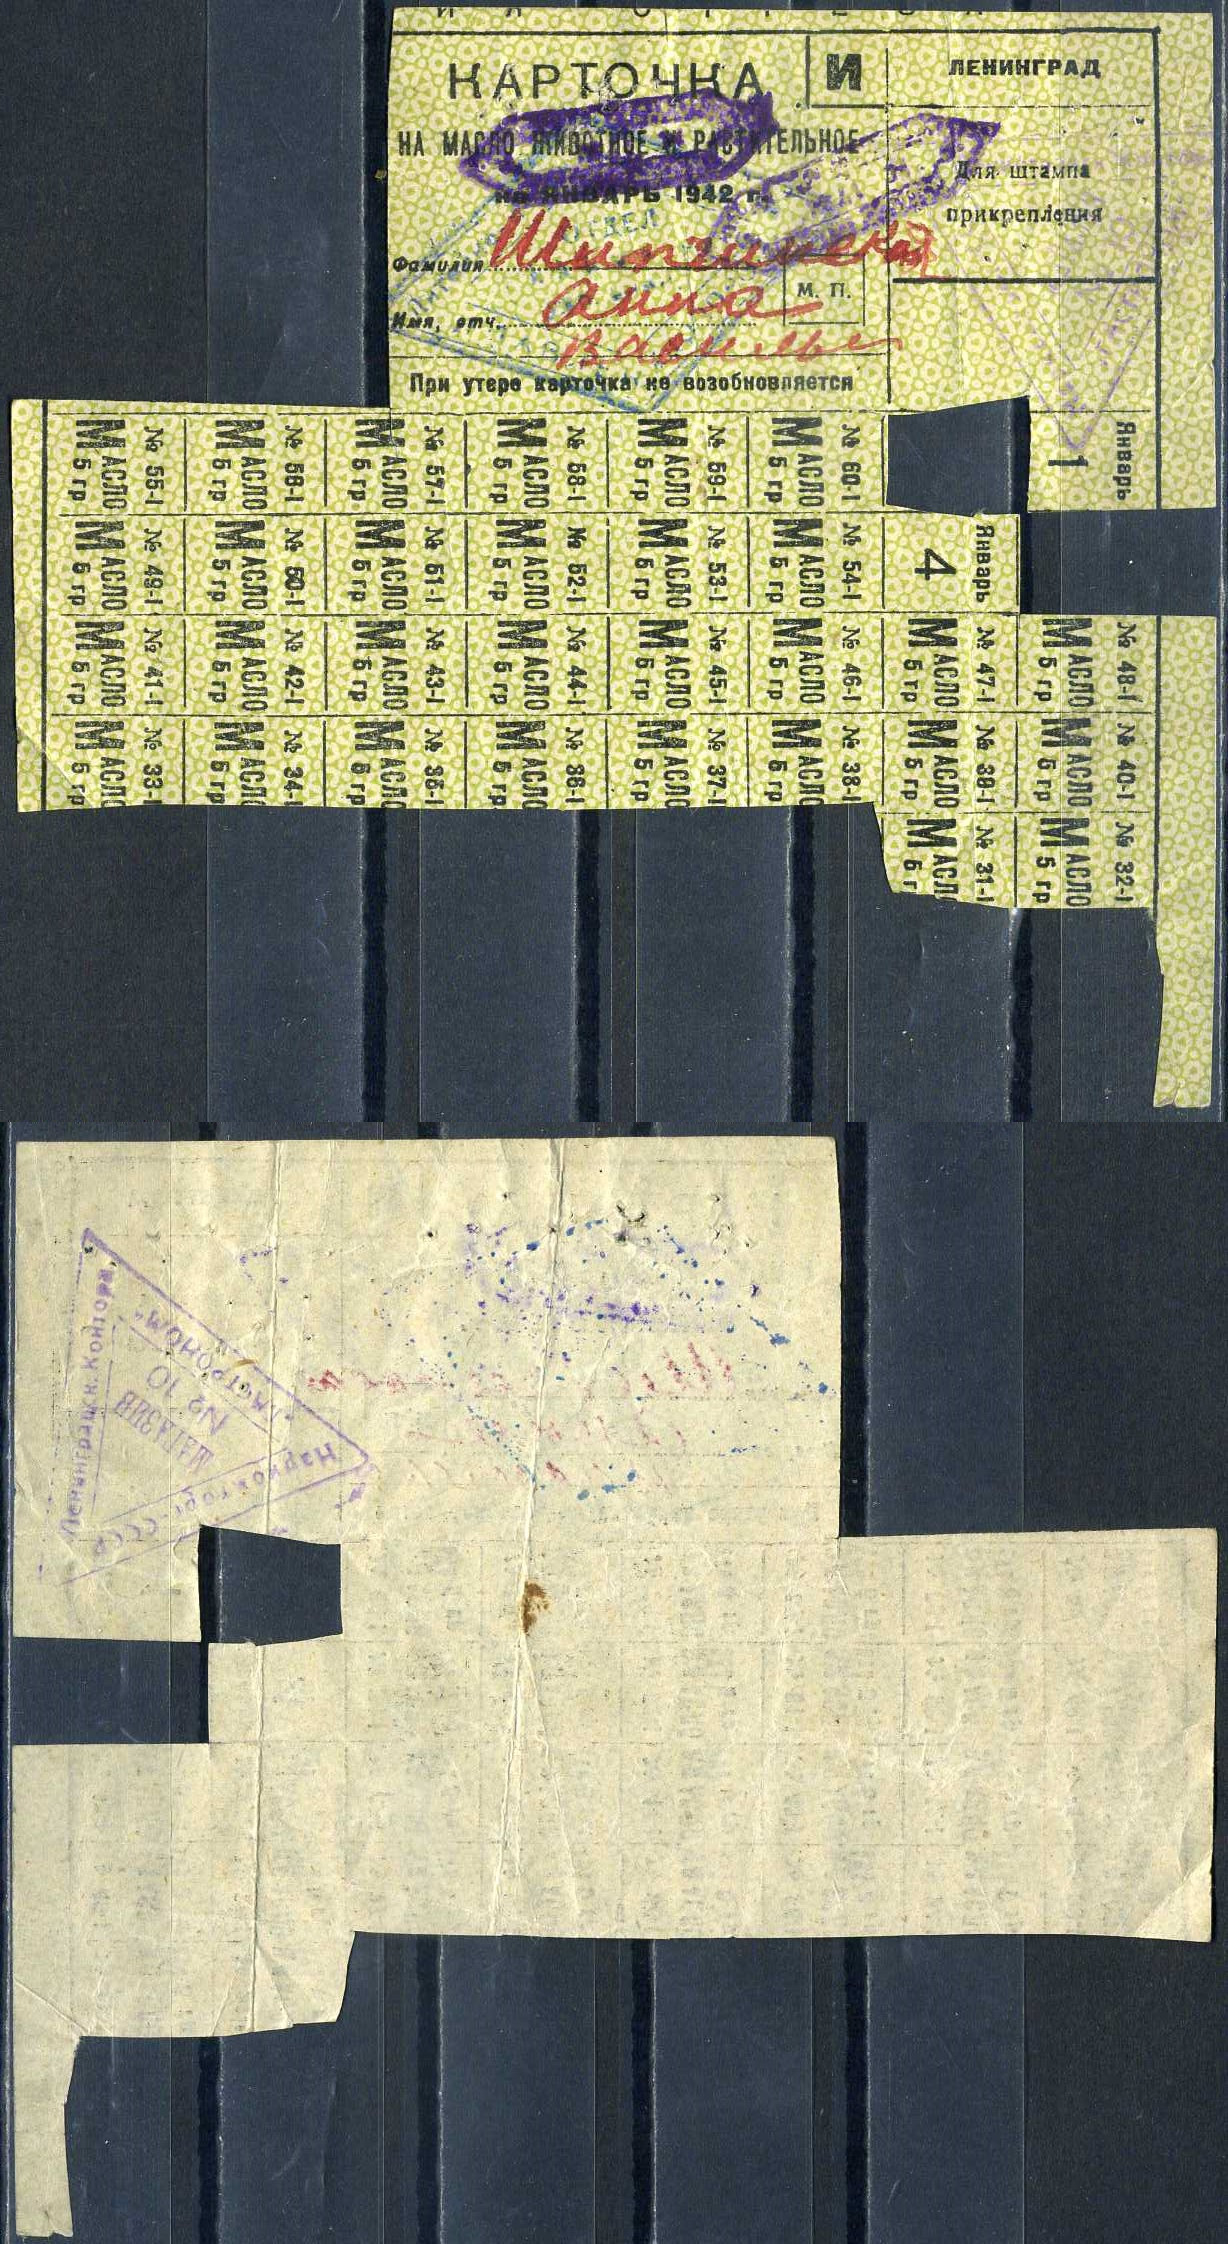 КАРТОЧКА
И
ЛЕНИНГРАД
НА МАСЛО ЖИВОТНОЕ И РАСТИТЕЛЬНОЕ
на ЯНВАРЬ 1942 г.
Для штампа
прикрепления
ОТДЕЛ
Фамилия
Имя, отч.
Анна
М. П.
При утере карточка не возобновляется
Январь
1
№ 55-I МАСЛО 5 гр
№ 56-I МАСЛО 5 гр
№ 57-I МАСЛО 5 гр
№ 58-I МАСЛО 5 гр
№ 59-I МАСЛО 5 гр
№ 60-I МАСЛО 5 гр
№ 49-I МАСЛО 5 гр
№ 50-I МАСЛО 5 гр
№ 51-I МАСЛО 5 гр
№ 52-I МАСЛО 5 гр
№ 53-I МАСЛО 5 гр
№ 54-I МАСЛО 5 гр
Январь
4
№ 41-I МАСЛО 5 гр
№ 42-I МАСЛО 5 гр
№ 43-I МАСЛО 5 гр
№ 44-I МАСЛО 5 гр
№ 45-I МАСЛО 5 гр
№ 46-I МАСЛО 5 гр
№ 47-I МАСЛО 5 гр
№ 48-I МАСЛО 5 гр
№ 33-I МАСЛО 5 гр
№ 34-I МАСЛО 5 гр
№ 35-I МАСЛО 5 гр
№ 36-I МАСЛО 5 гр
№ 37-I МАСЛО 5 гр
№ 38-I МАСЛО 5 гр
№ 39-I МАСЛО 5 гр
№ 40-I МАСЛО 5 гр
№ 31-I МАСЛО 5 гр
№ 32-I МАСЛО 5 гр
Наркомторг-СССР
Ленинградск. Контора
"ГАСТРОНОМ"
МАГАЗИН
№ 10